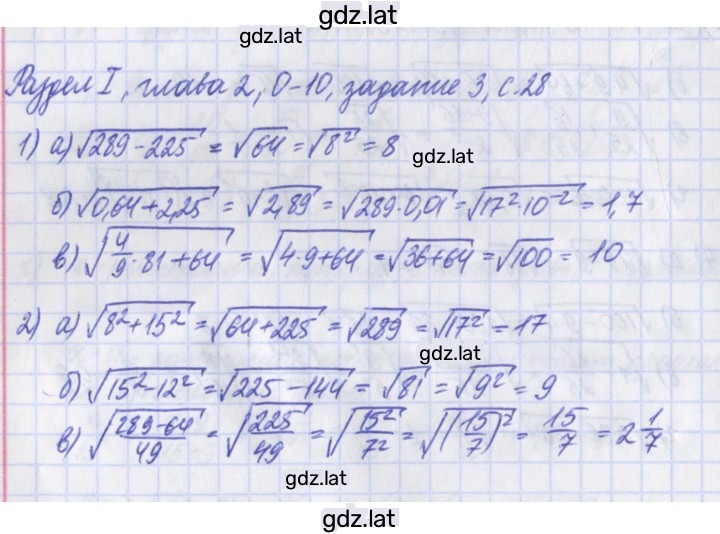 gdz.lat
gdz.lat
Раздел I, глава 2, О-10, задание 3, с.28
1) а) √289-225 = √64 = √8² = 8
gdz.lat
б) √0,64+2,25 = √2,89 = √289·0,01 = √17²·10⁻² = 1,7
в) √4/9·81+64 = √4·9+64 = √36+64 = √100 = 10
2) а) √8²+15² = √64+225 = √289 = √17² = 17
gdz.lat
б) √15²-12² = √225-144 = √81 = √9² = 9
в) √289-64/49 = √225/49 = √15²/7² = √(15/7)² = 15/7 = 2 1/7
gdz.lat
gdz.lat